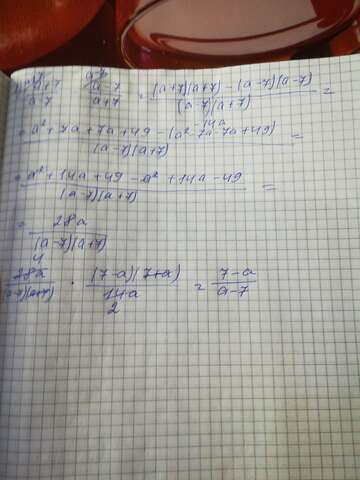 a+7/a-7 - a-7/a+7 = (a+7)(a+7) - (a-7)(a-7)/(a-7)(a+7) =
= a² + 7a + 7a + 49 - (a² - 7a - 7a + 49)/(a-7)(a+7) =
-14a
= a² + 14a + 49 - a² + 14a - 49/(a-7)(a+7) =
= 28a/(a-7)(a+7)
4
28a/(a-7)(a+7) · (7-a)(7+a)/14a = 7-a/a-7
2